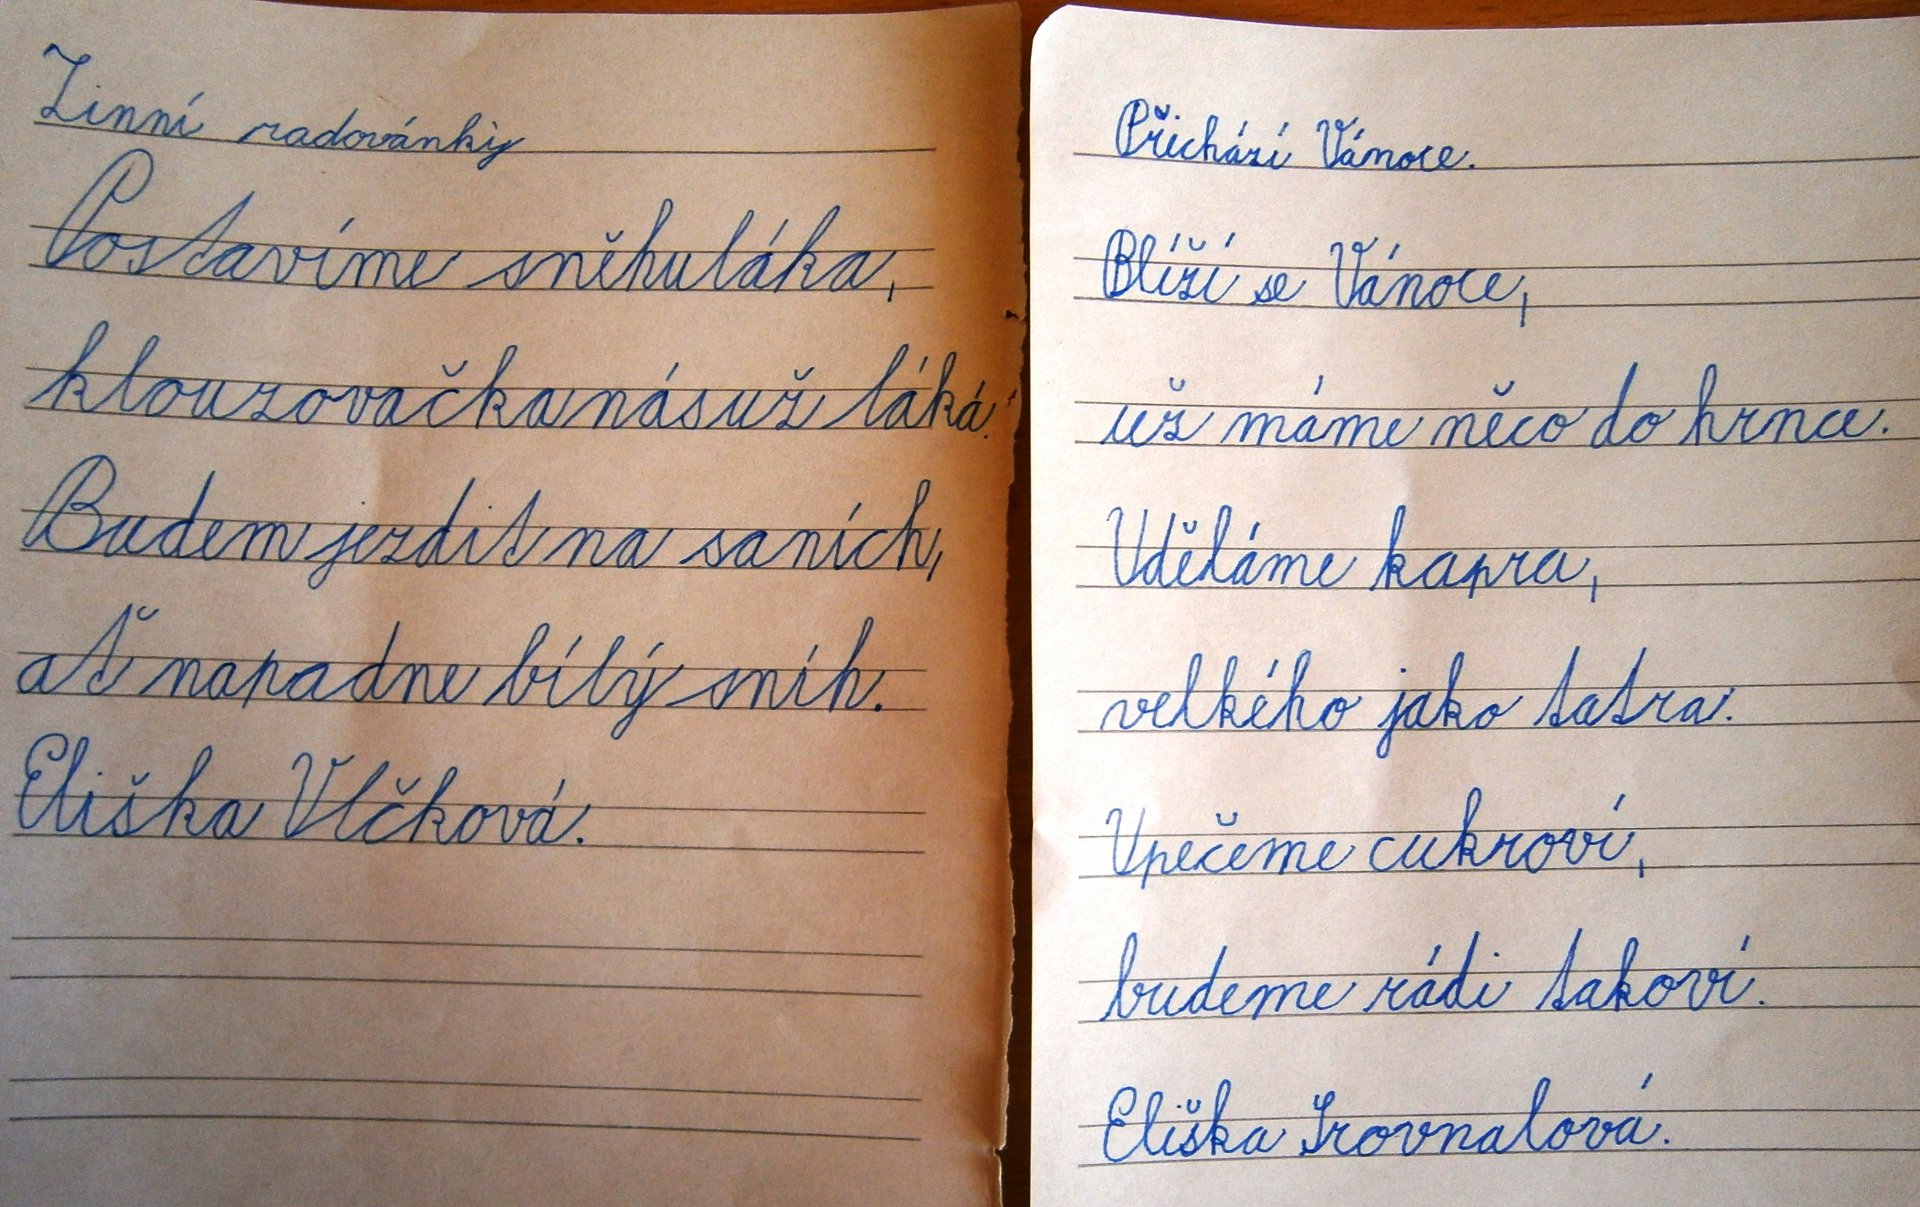 Zimní radovánky
Postavíme sněhuláka,
klouzovačka nás už láká.
Budem jezdit na saních,
ať napadne bílý sníh.
Eliška Vlčková.
Přichází Vánoce.
Blíží se Vánoce,
už máme něco do hrnce.
Uděláme kapra,
velkého jako tatra.
Upečeme cukroví,
budeme rádi takoví.
Eliška